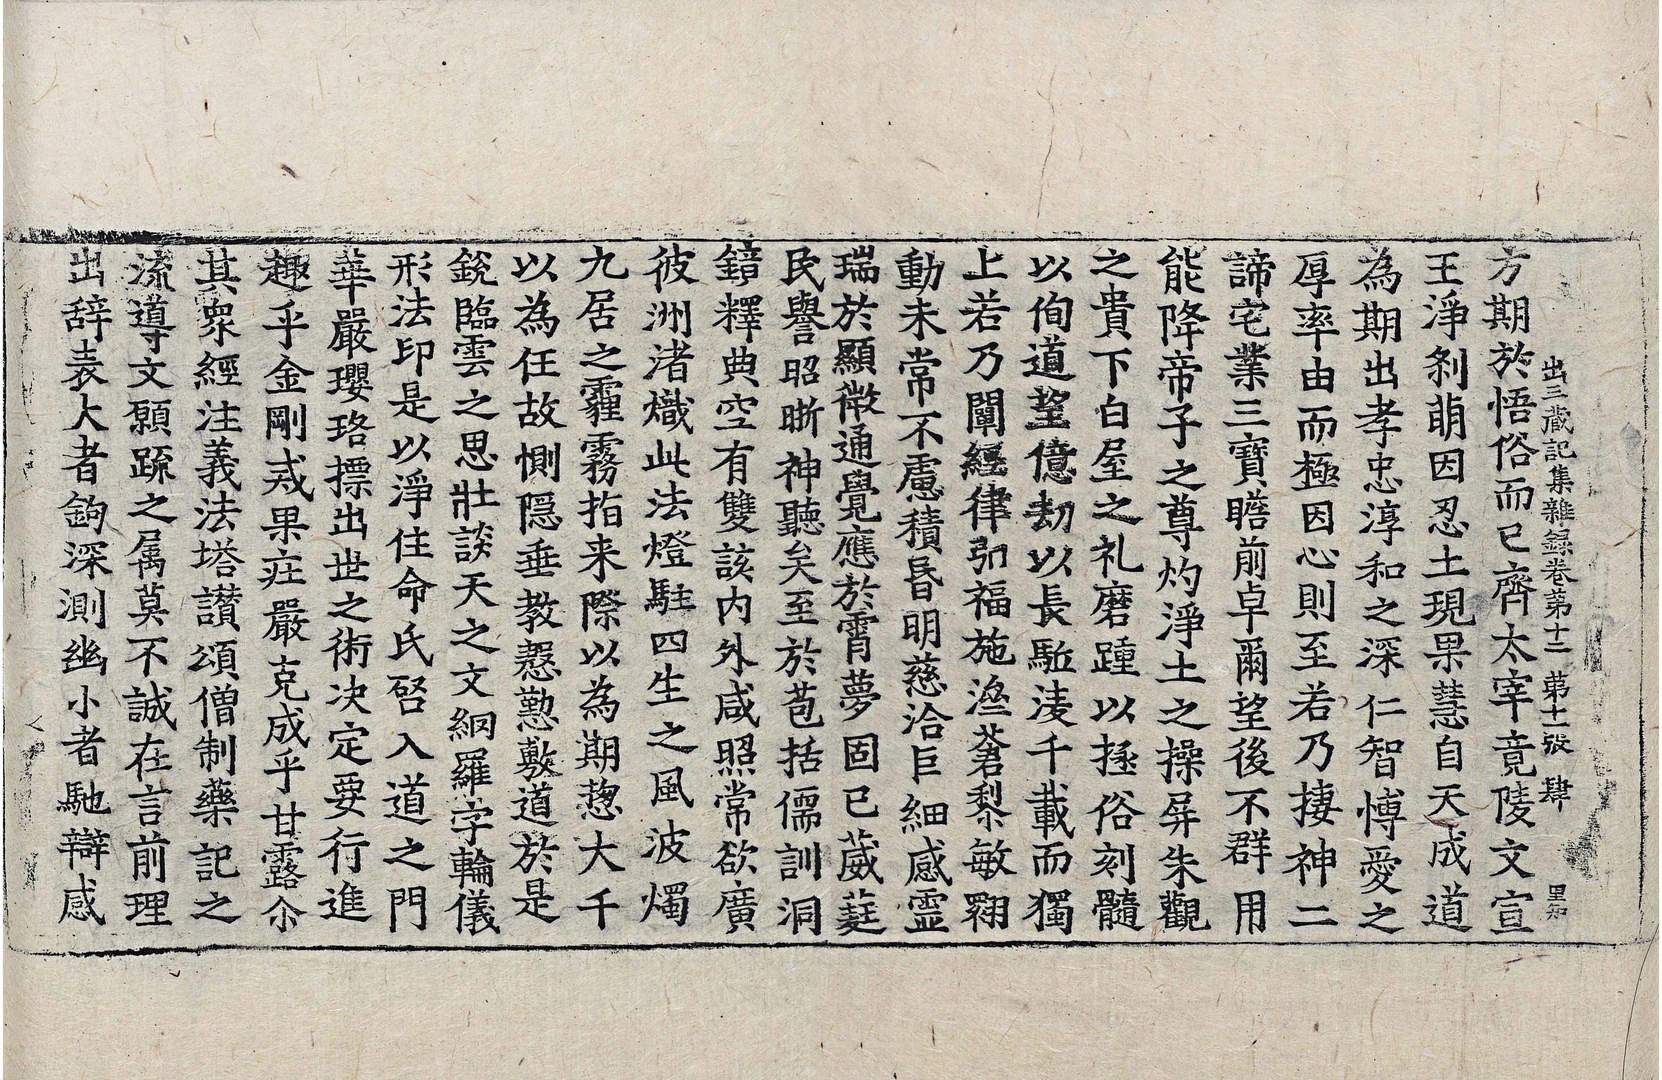 出三藏記集雜錄卷苐十二　苐十一張　肆
方期於悟俗而已齊太宰竟陵文宣
王淨剎萠因忍土現果慧自天成道
為期出孝忠淳和之深仁智愽愛之
厚率由而極因心則至若乃捿神二
諦宅業三寶瞻前卓爾望後不群用
能降帝子之尊灼淨土之操屏朱觀
之貴下白屋之礼磨踵以拯俗刻髓
以徇道望億劫以長駈淩千載而獨
上若乃闡經律引福施𣹢蒼黎敏翾
動未常不慮積昏明慈洽巨細感霊
瑞於顯微通覺應於霄夢固已葳莛
民譽昭晰神聽矣至於苞括儒訓洞
鏡釋典空有雙該內外咸照常欲廣
彼洲渚熾此法燈駐四生之風波燭
九居之霾霧指来際以為期摠大千
以為任故惻隠垂教懇懃敷道於是
銳臨雲之思壯談天之文網羅字輪儀
形法印是以淨住命氏啓入道之門
華嚴瓔珞摽出世之術决定要行進
趣乎金剛戒果庄嚴克成乎甘露尒
其衆經注義法塔讃頌僧制藥記之
流導文願䟽之属莫不誠在言前理
出辞表大者鉤深測幽小者馳辯感